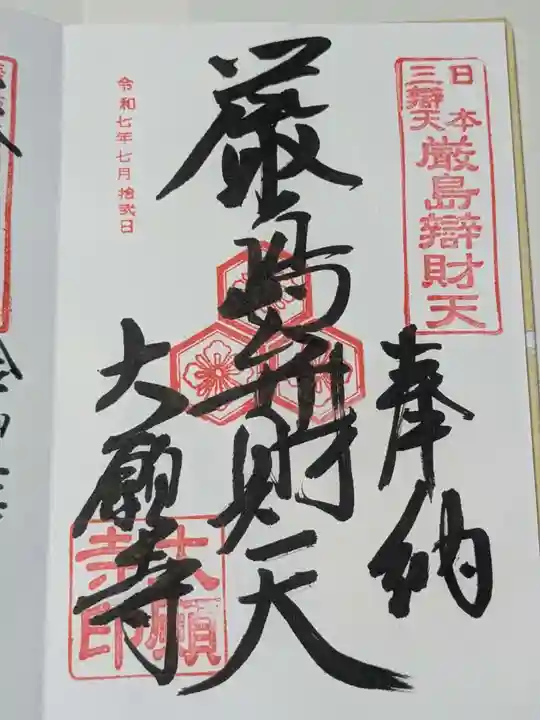 日本
三辯天
厳島辯財天
奉納
厳島弁財天
令和七年七月拾弐日
大願寺
大願寺印